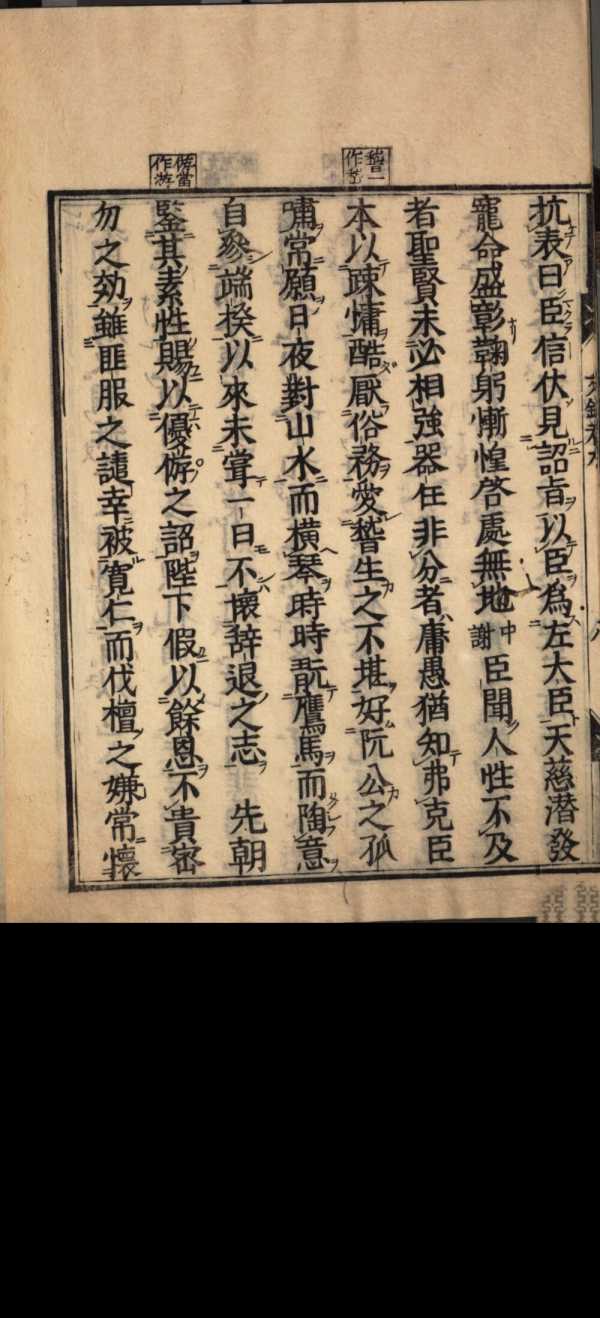 抗表曰臣信伏見詔旨以臣為左大臣天慈潜發
寵命盛彰鞠躬慚惶啓處無地中謝臣聞人性不及
者聖賢未必相強器任非分者庸愚猶知弗克臣
嵆一作嵆
本以踈慵酷厭俗務愛嵆生之不堪好阮公之孤
嘯常願日夜對山水而横琴時時翫鷹馬而陶意
自參端揆以來未嘗一日不懷辞退之志 先朝
㳺當作游
鑒其素性賜以優㳺之詔陛下假以餘恩不貴密
勿之効雖匪服之譴幸被寛仁而伐檀之嫌常懷